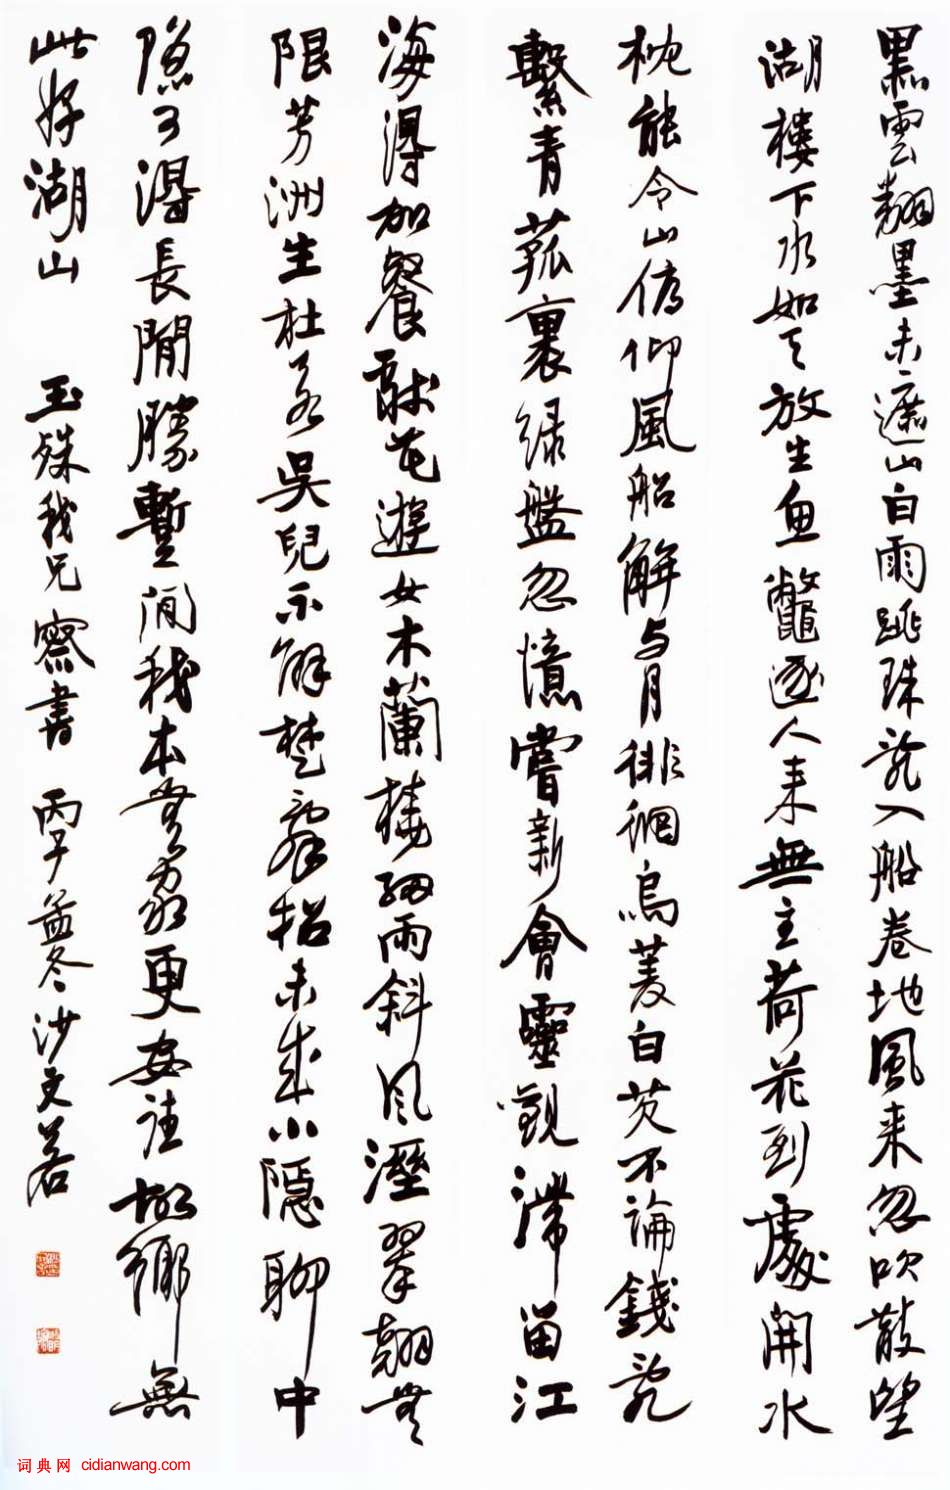 黑雲翻墨未遮山白雨跳珠亂入船卷地風來忽吹散望
湖樓下水如天放生魚鼈逐人來無主荷花到處開水
枕能令山俯仰風船解与月徘徊烏菱白芡不論錢亂
繫青菰裹綠盤忽憶嘗新會靈觀滯留江
海得加餐獻花遊女木蘭橈細雨斜風溼翠翹無
限芳洲生杜若吳兒不解楚辭招未成小隱聊中
隱可得長閒勝暫閒我本無家更安往故鄉無
此好湖山 玉殊我兄察書 丙子孟冬沙文若
词典网 cidianwang.com